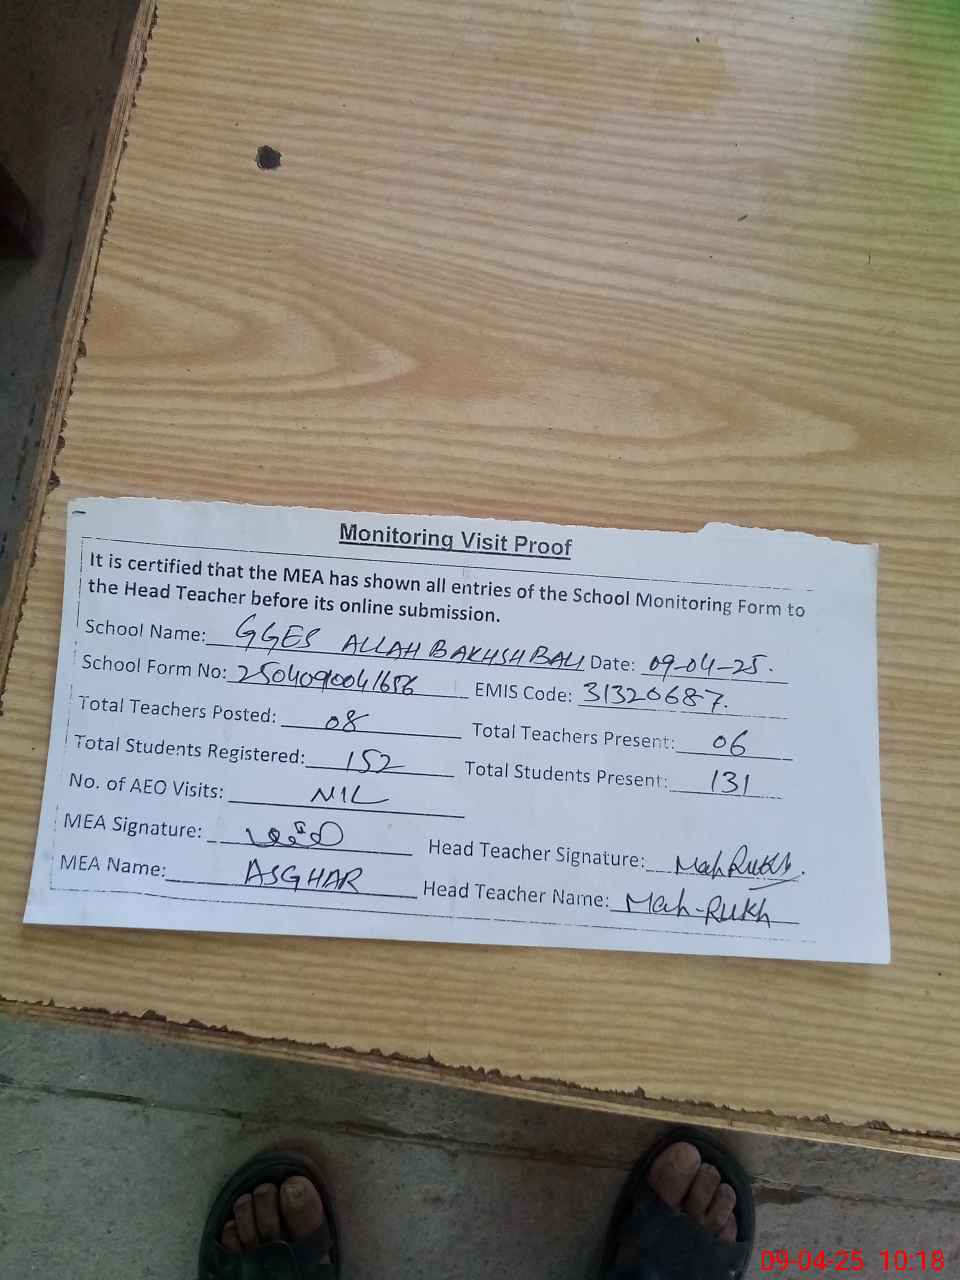 Monitoring Visit Proof
It is certified that the MEA has shown all entries of the School Monitoring Form to
the Head Teacher before its online submission.
School Name: GGES ALLAH BAKHSH BALI Date: 09-04-25.
School Form No: 2504090041656 EMIS Code: 31320687.
Total Teachers Posted: 08 Total Teachers Present: 06
Total Students Registered: 152 Total Students Present: 131
No. of AEO Visits: NIL
MEA Signature: Head Teacher Signature: Mah Rukh.
MEA Name: ASGHAR Head Teacher Name: Mah-Rukh
09-04-25 10:18